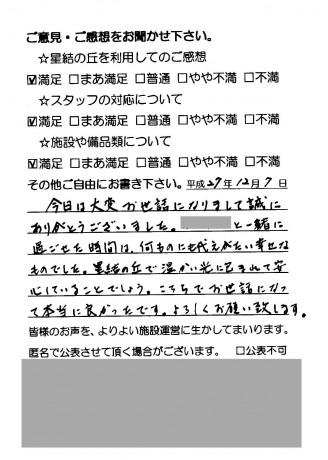 ご意見・ご感想をお聞かせ下さい。
☆星結の丘を利用してのご感想
☑満足 □まあ満足 □普通 □やや不満 □不満
☆スタッフの対応について
☑満足 □まあ満足 □普通 □やや不満 □不満
☆施設や備品類について
☑満足 □まあ満足 □普通 □やや不満 □不満
その他ご自由にお書き下さい。平成27年12月7日
今日は大変お世話になりまして誠に
ありがとうございました。 と一緒に
過ごせた時間は、何ものにも代えがたい幸せな
ものでした。星結の丘で温かい光に包まれて安
心していることでしょう。こちらでお世話になっ
て本当に良かったです。よろしくお願い致します。
皆様のお声を、よりよい施設運営に生かしてまいります。
匿名で公表させて頂く場合がございます。 □公表不可